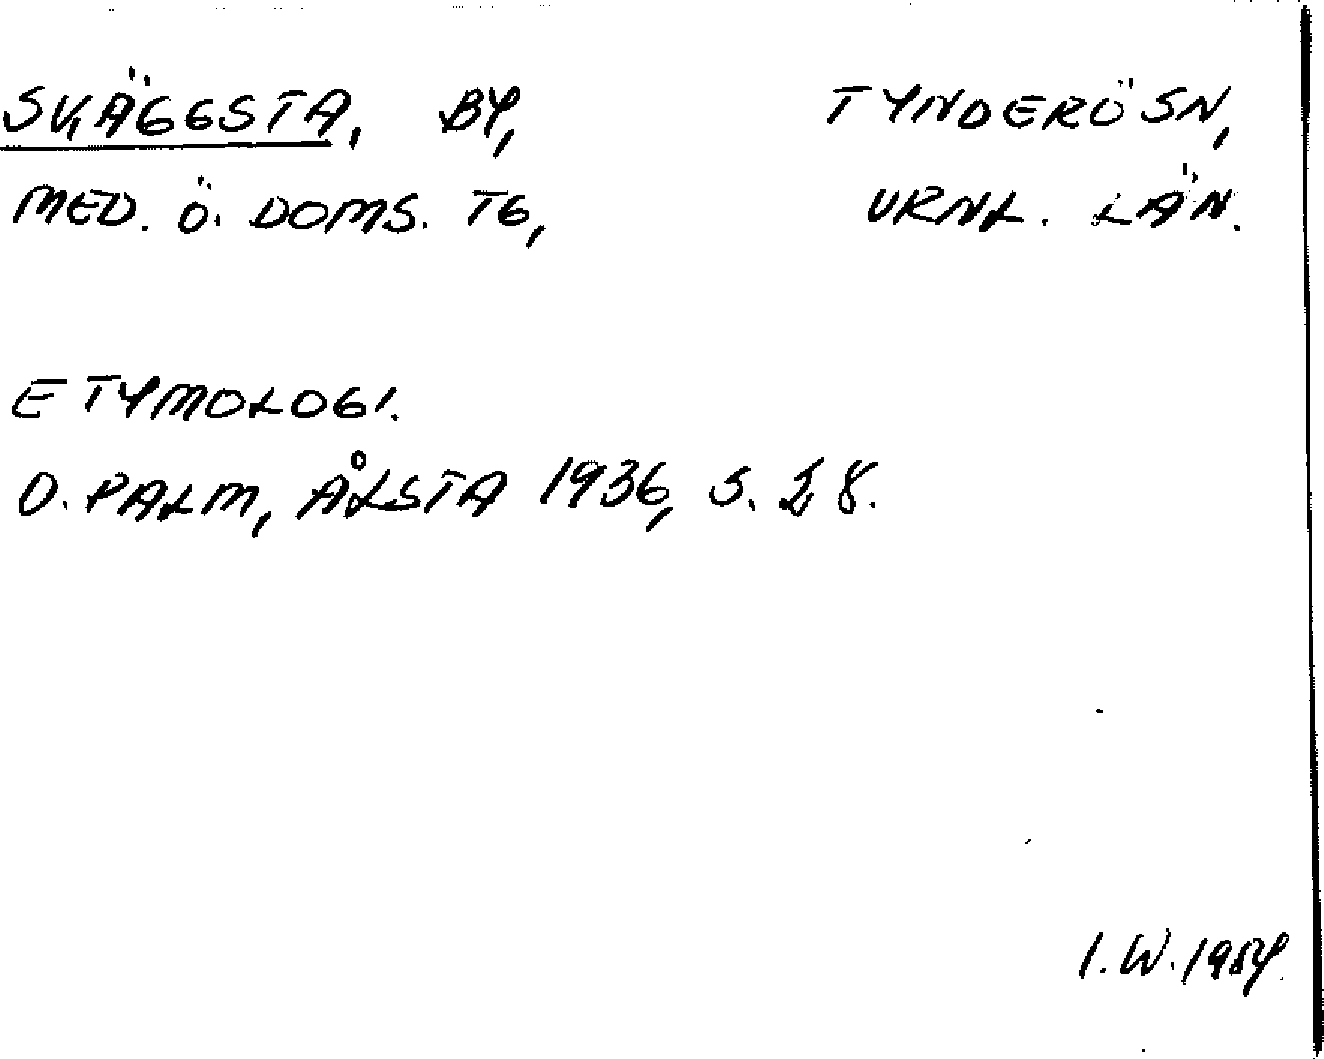 SKÄGGSTA, BY, TYNDERÖ SN,
MED. Ö. DOMS. TG, VRNL. LÄN.
ETYMOLOGI.
D. PALM, ÅLSTA 1936, S. 28.
I. W. 1984.